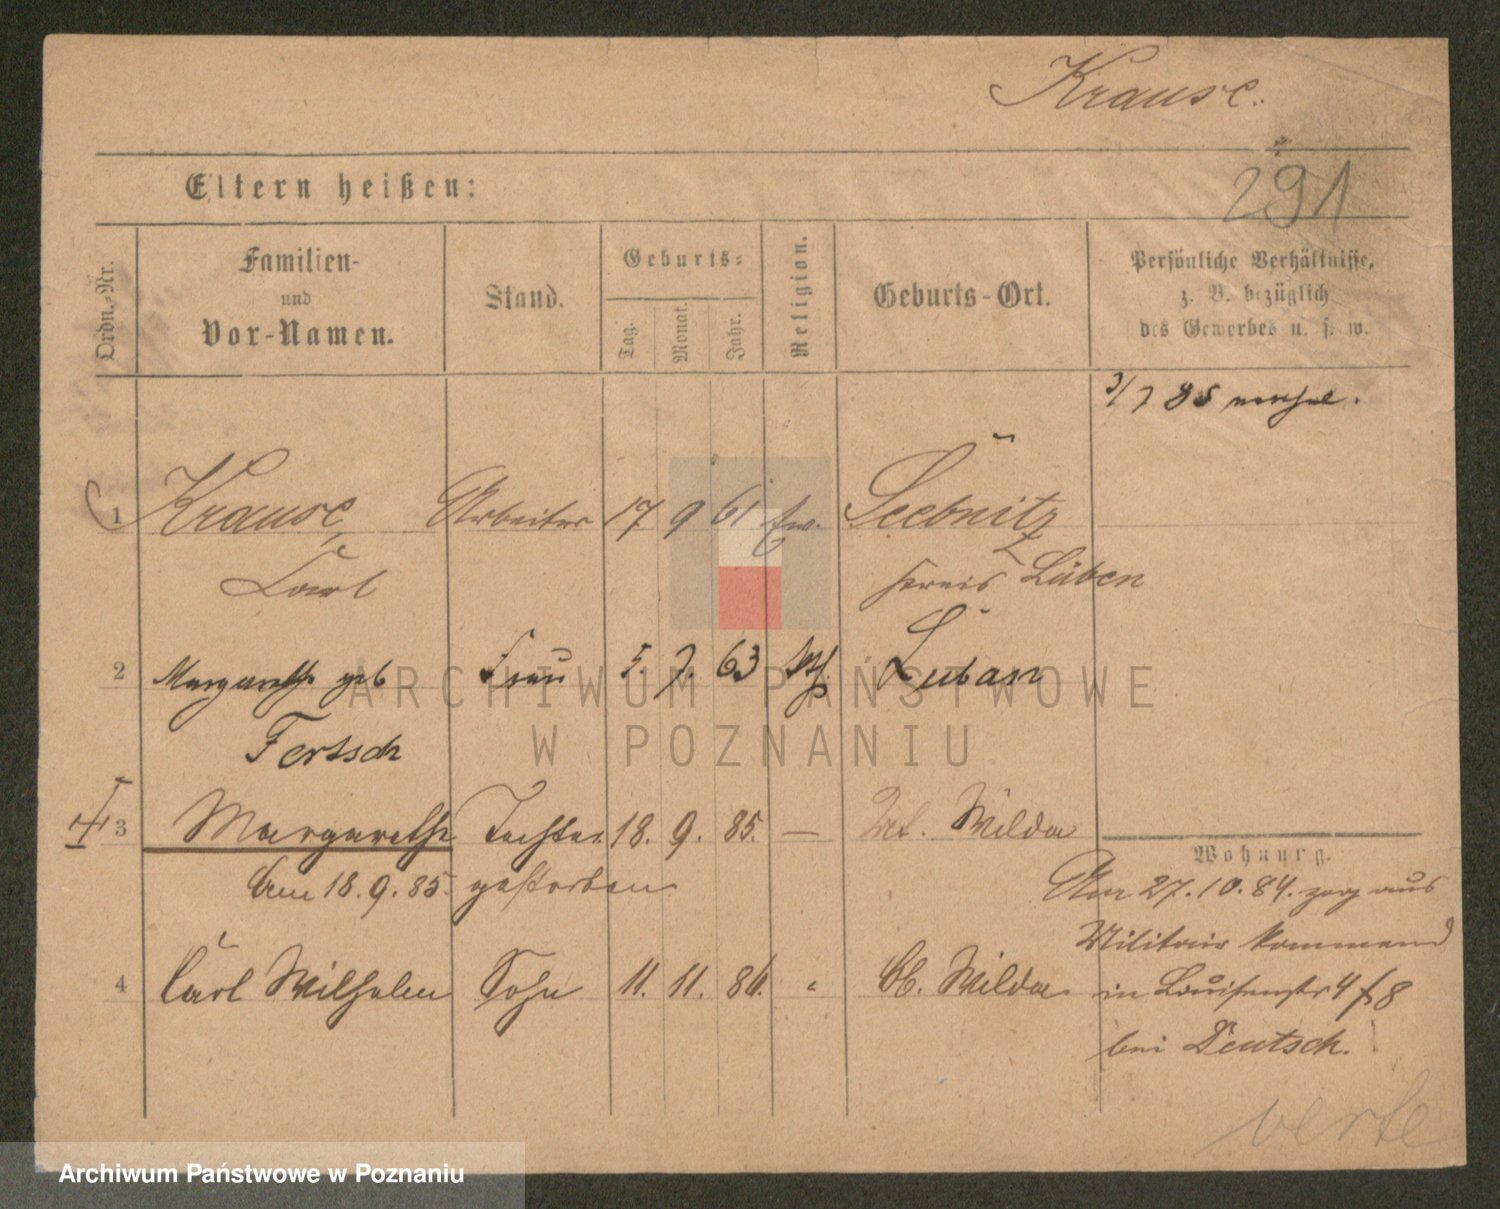 Krause.
291
Eltern heißen:
Ordn.-Nr.
Familien-
und
Vor-Namen.
Stand.
Geburts-
Tag.
Monat.
Jahr.
Religion.
Geburts-Ort.
Persönliche Verhältnisse,
z. B. bezüglich
des Gewerbes u. s. w.
3/7 85
1 Krause, Arbeiter 17 9 61 Ev. Seebnitz
Carl Kreis Lüben
2 Margarethe geb Frau 5. 7. 63 kth. Luban
Fertsch
3 Margarethe Tochter 18. 9. 85. — Wilda
Am 18.9.85. gestorben.
4 Carl Wilhelm Sohn 11. 11. 86. " Ob. Wilda
Wohnung.
Am 27.10.84. zog aus
Militair kommend
in Louisenstr 4 f 8
bei Deutsch.
verte
ARCHIWUM PAŃSTWOWE
W POZNANIU
Archiwum Państwowe w Poznaniu